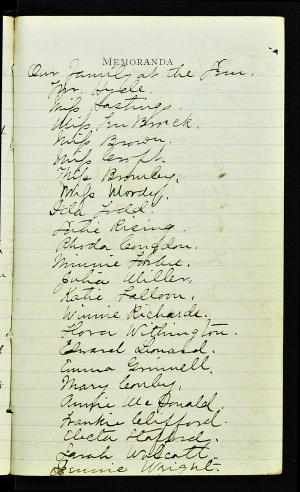 MEMORANDA
Our Family at the Fem.
Mr. Hyde.
Miss Hastings.
Miss Ten Broeck.
Miss Brown.
Miss Croft.
Miss Bromley.
Miss Wordey.
Ida Todd.
Rising.
Rhoda Congdon.
Minnie Forbee.
Julia Miller.
Katie Falloon.
Winnie Richards.
Flora Withington.
Edward Leonard.
Emma Grinnell.
Mary Conly.
Annie McDonald.
Frankie Clifford.
Electa Stafford.
Sarah Walcott.
Jennie Wright.